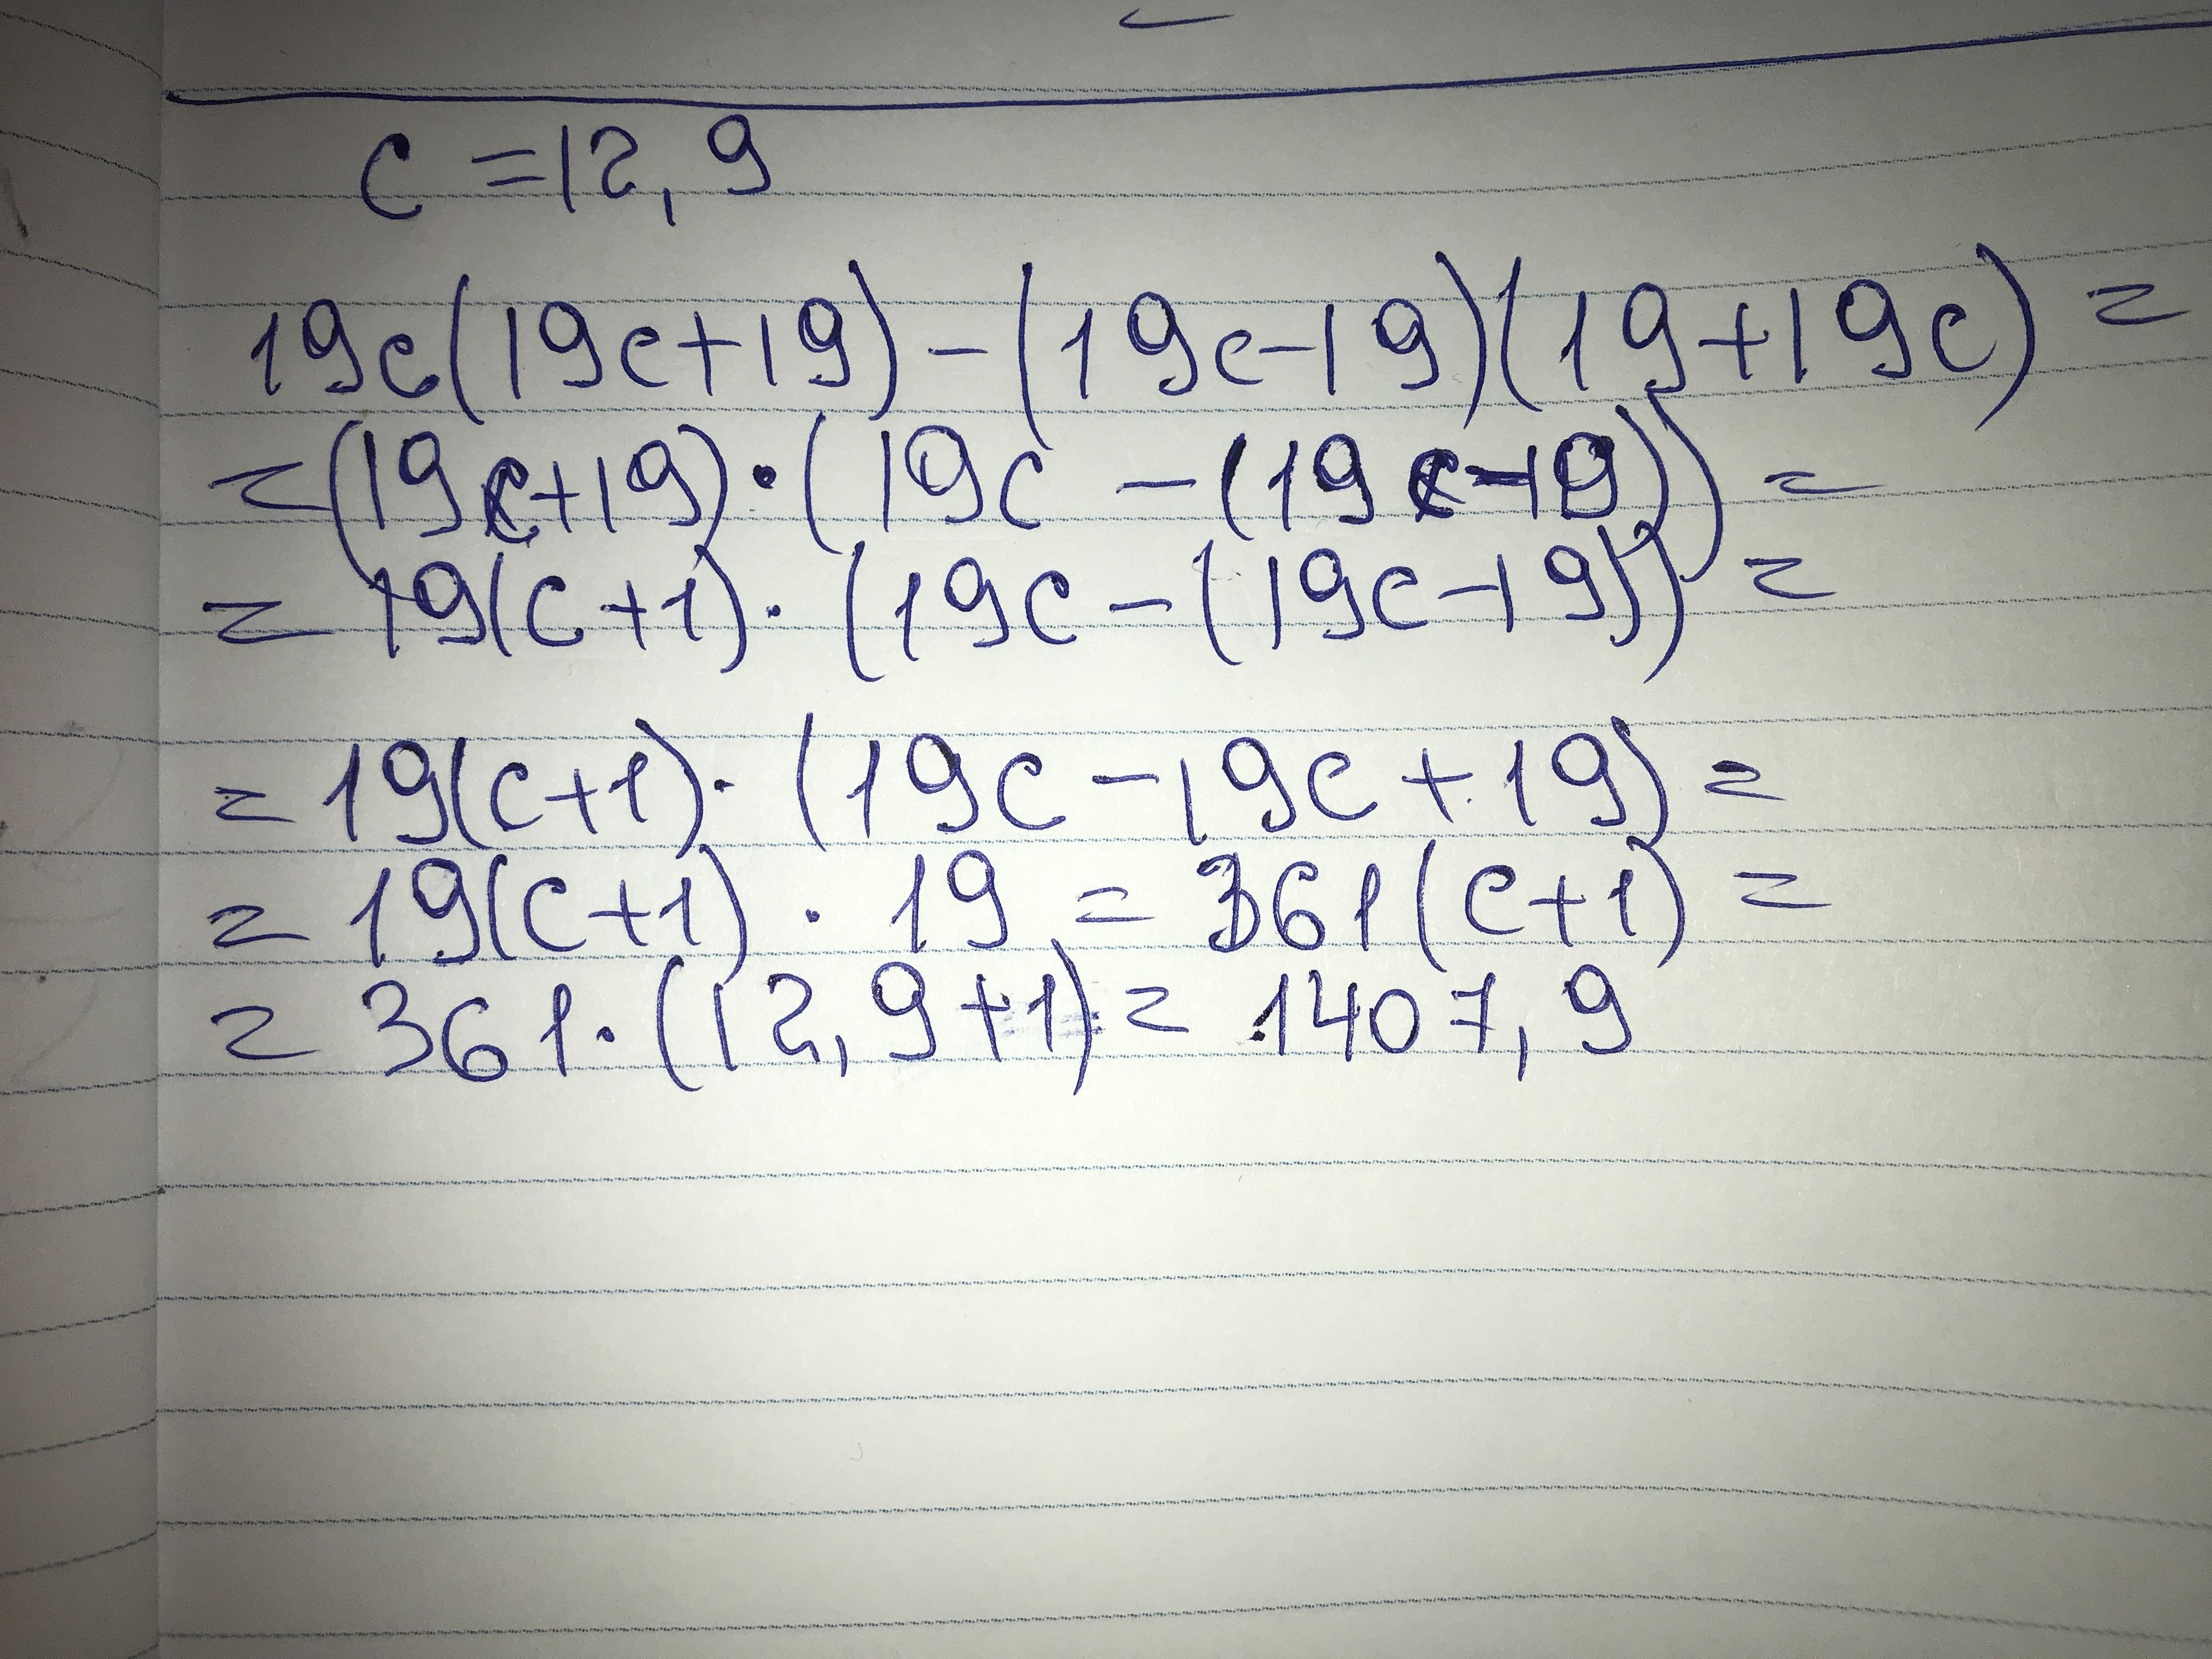 c = 12,9
19c(19c+19)-(19c-19)(19+19c) =
=(19c+19)·(19c-(19c-19)) =
= 19(c+1)·(19c-(19c-19)) =
= 19(c+1)·(19c-19c+19) =
= 19(c+1)·19 = 361(c+1) =
= 361·(12,9+1) = 1407,9